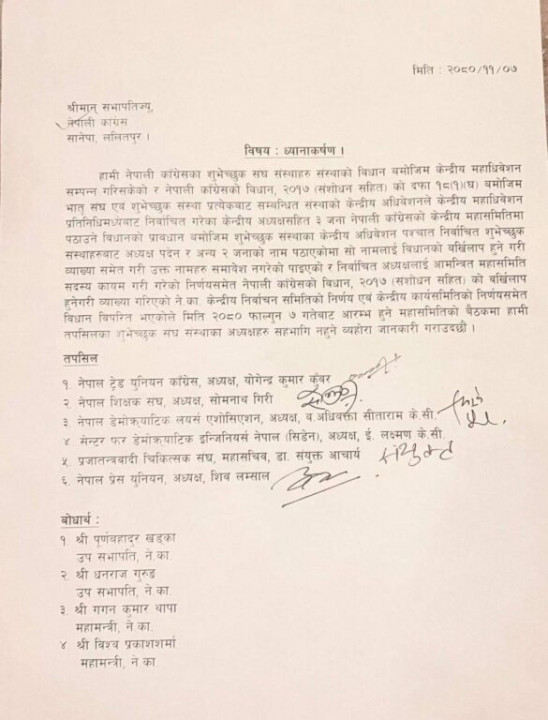 मिति : २०८०/११/०७
श्रीमान् सभापतिज्यू,
नेपाली कांग्रेस
सानेपा, ललितपुर ।
विषय : ध्यानाकर्षण ।
हामी नेपाली कांग्रेसका शुभेच्छुक संघ संस्थाहरु संस्थाको विधान बमोजिम केन्द्रीय महाधिवेशन
सम्पन्न गरिसकेको र नेपाली कांग्रेसको विधान, २०१७ (संशोधन सहित) को दफा १८(१)(घ) बमोजिम
भातृ संघ एवं शुभेच्छुक संस्था प्रत्येकबाट सम्बन्धित संस्थाको केन्द्रीय अधिवेशनले केन्द्रीय महाधिवेशन
प्रतिनिधिमध्येबाट निर्वाचित गरेका केन्द्रीय अध्यक्षसहित ३ जना नेपाली कांग्रेसको केन्द्रीय महासमितिमा
पठाउने विधानको प्रावधान बमोजिम शुभेच्छुक संस्थाका केन्द्रीय अधिवेशन पश्चात निर्वाचित शुभेच्छुक
संस्थाहरुबाट अध्यक्ष पदेन र अन्य २ जनाको नाम पठाएकोमा सो नामलाई विधानको बर्खिलाप हुने गरी
व्याख्या समेत गरी उक्त नामहरु समावेश नगरेको पाइएको र निर्वाचित अध्यक्षलाई आमन्त्रित महासमिति
सदस्य कायम गरी गरेको निर्णयसमेत नेपाली कांग्रेसको विधान, २०१७ (संशोधन सहित) को बर्खिलाप
हुनेगरी व्याख्या गरिएको ने.का. केन्द्रीय निर्वाचन समितिको निर्णय एवं केन्द्रीय कार्यसमितिको निर्णयसमेत
विधान विपरित भएकोले मिति २०८० फाल्गुन ७ गतेबाट आरम्भ हुने महासमितिको बैठकमा हामी
तपसिलका शुभेच्छुक संघ संस्थाका अध्यक्षहरु सहभागि नहुने व्यहोरा जानकारी गराउदछौं ।
तपसिल
१. नेपाल ट्रेड युनियन कांग्रेस, अध्यक्ष, योगेन्द्र कुमार कुँवर
२. नेपाल शिक्षक संघ, अध्यक्ष, सोमनाथ गिरी
३. नेपाल डेमोक्र्याटिक लयर्स एशोसिएशन, अध्यक्ष, व.अधिवक्ता सीताराम के.सी.
४ सेन्टर फर डेमोक्र्याटिक इन्जिनियर्स नेपाल (सिडेन), अध्यक्ष, ई. लक्ष्मण के.सी.
५ प्रजातन्त्रवादी चिकित्सक संघ, महासचिव, डा. संयुक्त आचार्य संयुक्त
६. नेपाल प्रेस युनियन, अध्यक्ष, शिव लम्साल
बोधार्थ :
१. श्री पूर्णबहादुर खड्का
उप सभापति, ने.का
२. श्री धनराज गुरुङ
उप सभापति, ने.का.
३. श्री गगन कुमार थापा
महामन्त्री, ने.का.
४ श्री विश्व प्रकाशशर्मा
महामन्त्री, ने.का